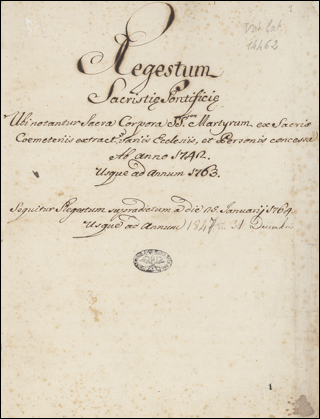 Vat. lat.
14462
Regestum
Sacristię Pontificię
Ubi notantur Sacra Corpora SS.rum Martyrum ex Sacris
Coemeteriis extract. variis Ecclesiis, et Personis concessa
Ab anno 1742.
Usque ad Annum 1763.
Sequitur Regestum supradictum a die 18. Januarij 1764.
Usque ad Annum 1847 31 Decembr